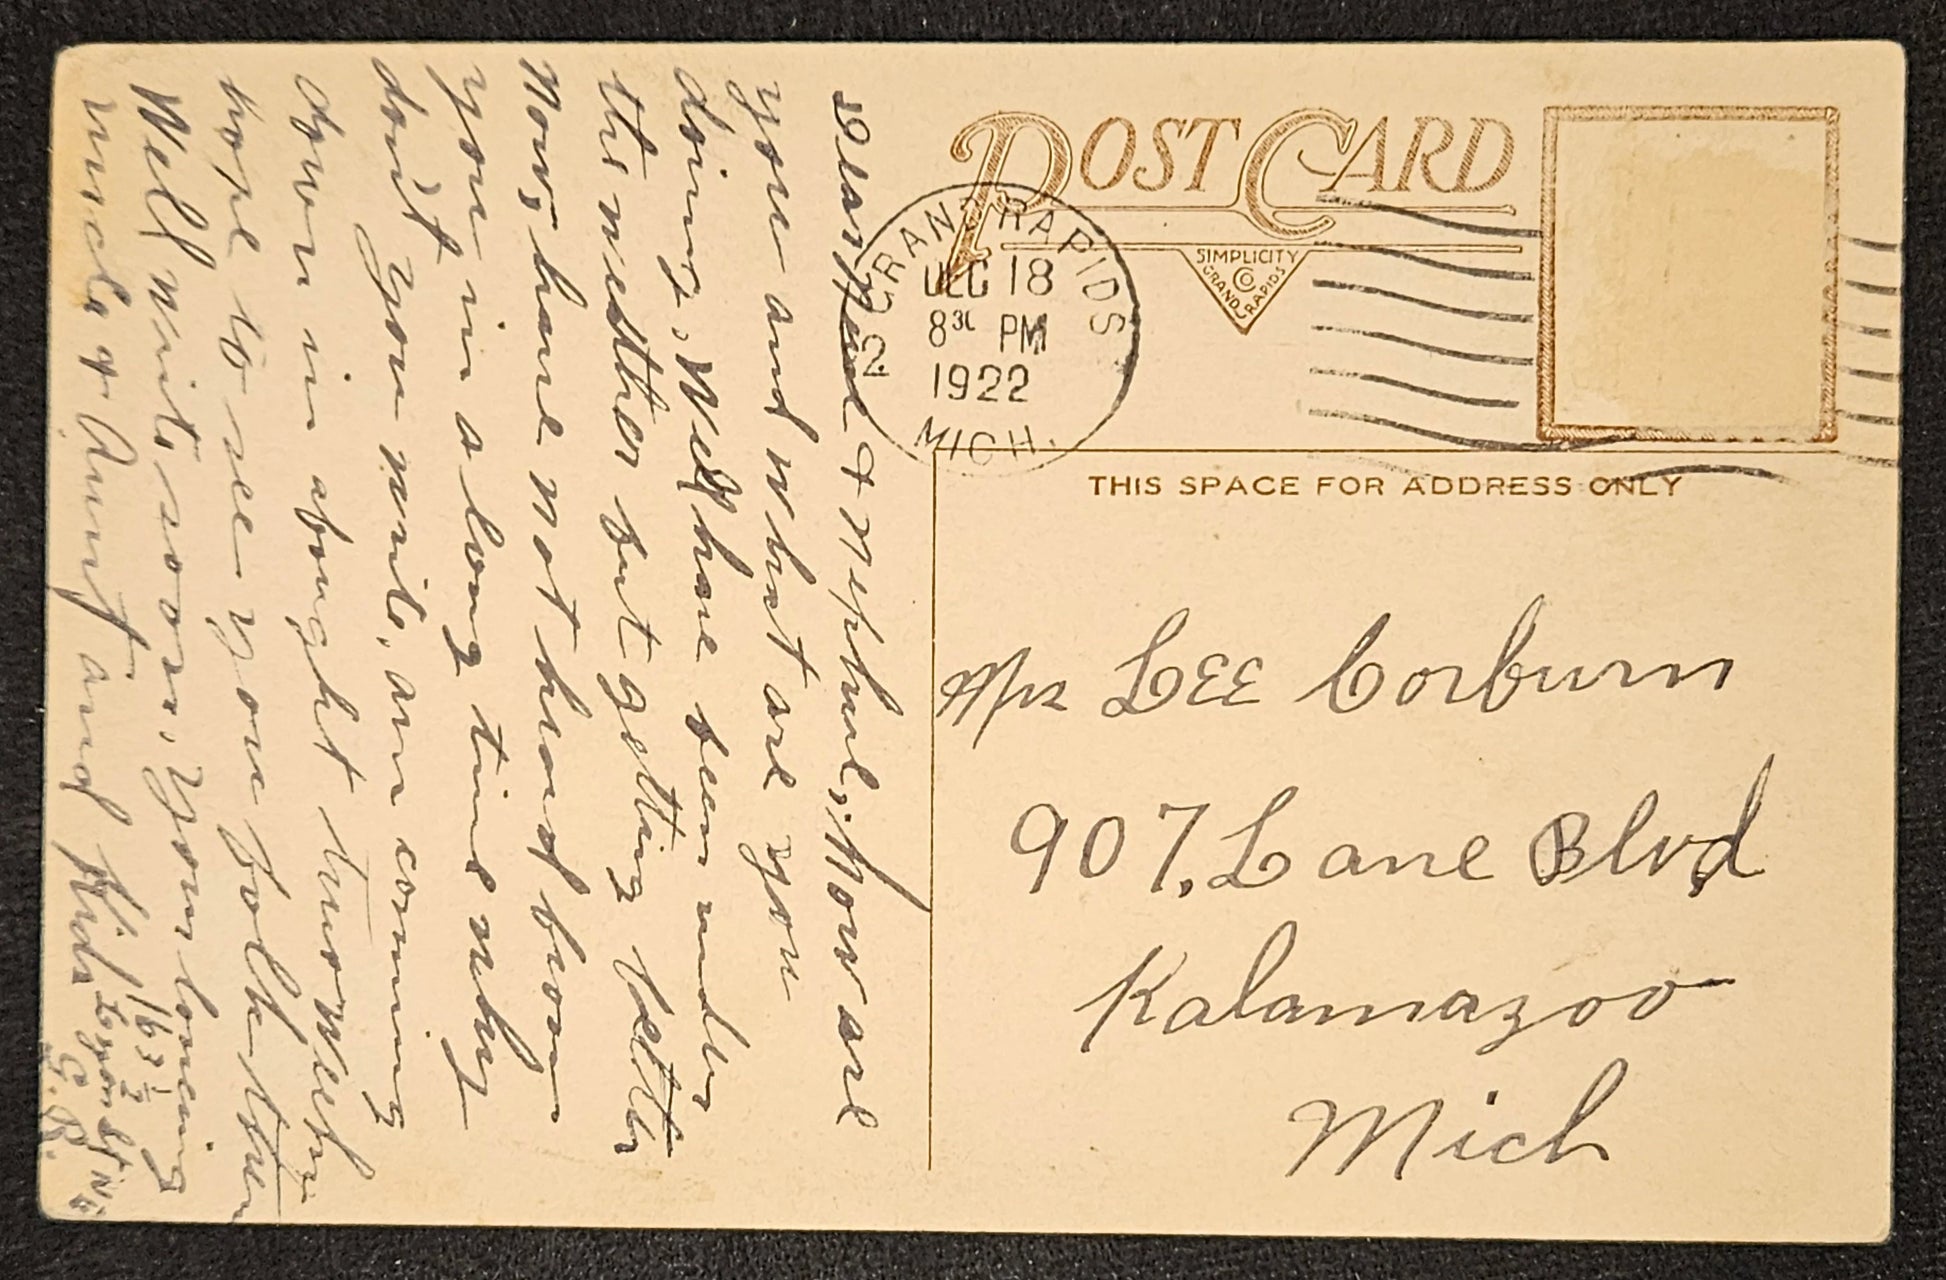 POST CARD
SIMPLICITY
CO
GRAND RAPIDS
GRAND RAPIDS
2
DEC 18
8 30 PM
1922
MICH.
THIS SPACE FOR ADDRESS ONLY
Mr LEE Corburn
907, Lane Blvd
Kalamazoo
Mich
Dear & nephue, How are
you and what are you
doing, Well have been under
the weather but getting better
Now, have not heard from
you in a long time why
don't you write, am coming
down in about two weeks
hope to see you folks then
Well write soon, your loveing
uncle & Aunt and Kids
163 1/2
St N.W
G.R.